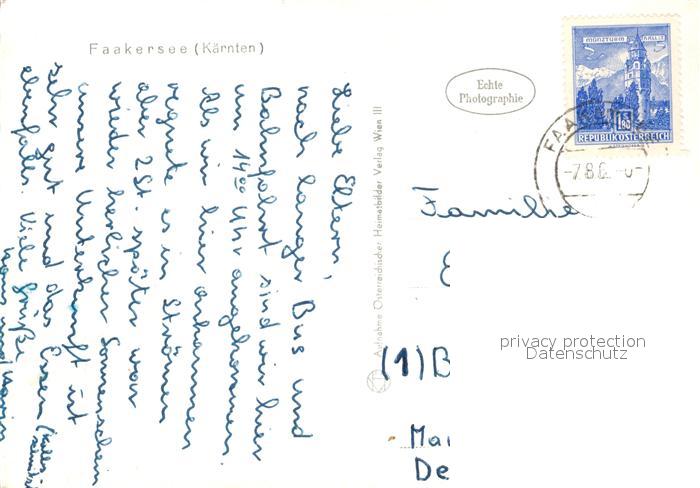 Faakersee (Kärnten)
Liebe Eltern,
nach langer Bus und
Bahnfahrt sind wir hier
um 14⁰⁰ Uhr angekommen.
Als wir hier ankamen
regnete es in Strömen
aber 2 St. später war
wieder herlicher Sonnenschein
unsere Unterkunft ist
sehr gut und das Essen
ebenfalls. Viele Grüße
Aufnahme Österreichischer Heimatbilder Verlag Wien III
Echte
Photographie
MÜNZTURM HALL i. T.
S
1.80
REPUBLIK ÖSTERREICH
FAA
-7.8.6
Familie
(1) B
Ma
De
privacy protection
Datenschutz